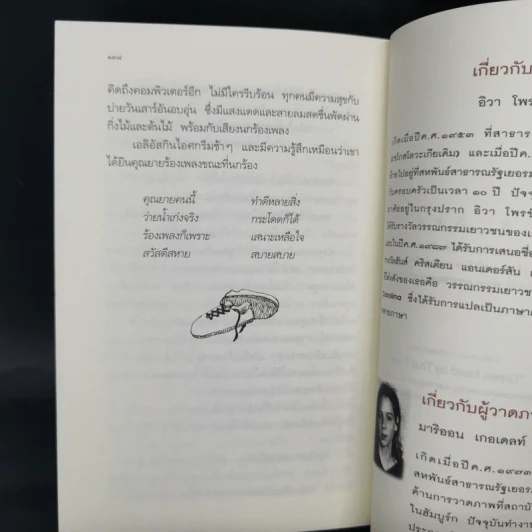 ๑๓๘
คิดถึงคอมพิวเตอร์อีก ไม่มีใครรีบร้อน ทุกคนมีความสุขกับ
บ่ายวันเสาร์อันอบอุ่น ซึ่งมีแสงแดดและสายลมสดชื่นพัดผ่าน
กิ่งไม้และต้นไม้ พร้อมกับเสียงนกร้องเพลง
เอลิอัสกินไอศกรีมช้าๆ และมีความรู้สึกเหมือนว่าเขา
ได้ยินคุณยายร้องเพลงขณะที่นกร้อง
คุณยายคนนี้ ทำดีหลายสิ่ง
ว่ายน้ำเก่งจริง กระโดดก็ได้
ร้องเพลงก็เพราะ เสนาะเหลือใจ
สวัสดีสหาย สบายสบาย
เกี่ยวกับ
อิวา โพร
เกิดเมื่อปีค.ศ.๑๙๕๓ ที่สาธาร
และเมื่อปีค.ศ.
ย้ายไปอยู่ที่สหพันธ์สาธารณรัฐเยอรม
กับครอบครัวเป็นเวลา ๑๐ ปี ปัจจุ
อยู่ในกรุงปราก อิวา โพรช
ได้รับรางวัลวรรณกรรมเยาวชนของ
และในปีค.ศ.๑๙๘๙ ได้รับการเสนอชื่อ
คริสเตียน แอนเดอร์สัน
ของเธอคือ วรรณกรรมเยาวช
Carolina ซึ่งได้รับการแปลเป็นภาษา
หลายภาษา
เกี่ยวกับผู้วาดภา
มาริออน เกอเดลท์
เกิดเมื่อปีค.ศ.๑๙๙๓
สหพันธ์สาธารณรัฐเยอร
ด้านการวาดภาพที่สถาบั
ในฮัมบูร์ก ปัจจุบันทำงา